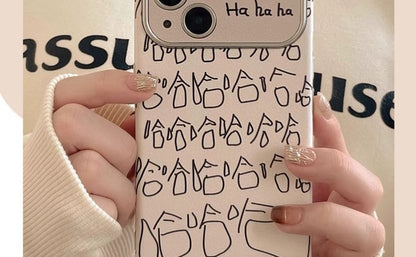 Ha ha ha
assu
use
哈哈哈哈哈
哈哈哈哈
哈哈哈哈哈
哈哈哈哈哈
哈哈哈